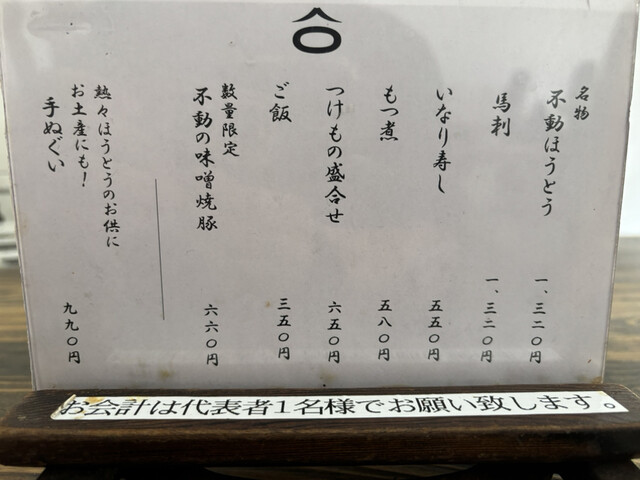 名物
不動ほうとう 一、三二〇円
馬刺 一、三二〇円
いなり寿し 五五〇円
もつ煮 五八〇円
つけもの盛合せ 六五〇円
ご飯 三五〇円
数量限定
不動の味噌焼豚 六六〇円
熱々ほうとうのお供に
お土産にも!
手ぬぐい 九九〇円
お会計は代表者1名様でお願い致します。